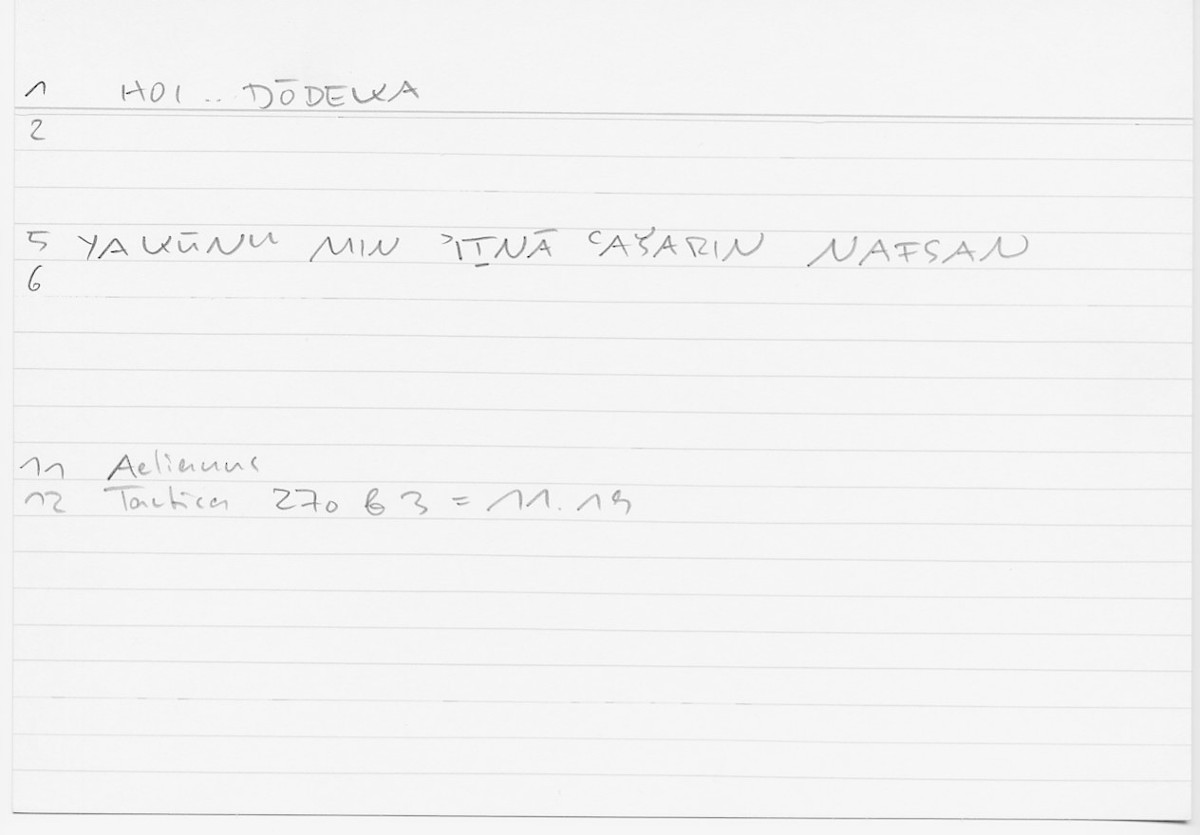 1 HOI .. DŌDEKA
2
5 YAKŪNU MIN ʾIṮNĀ ʿAŠARIN NAFSAN
6
11 Aelianus
12 Tactica 270 b 3 = 11.19